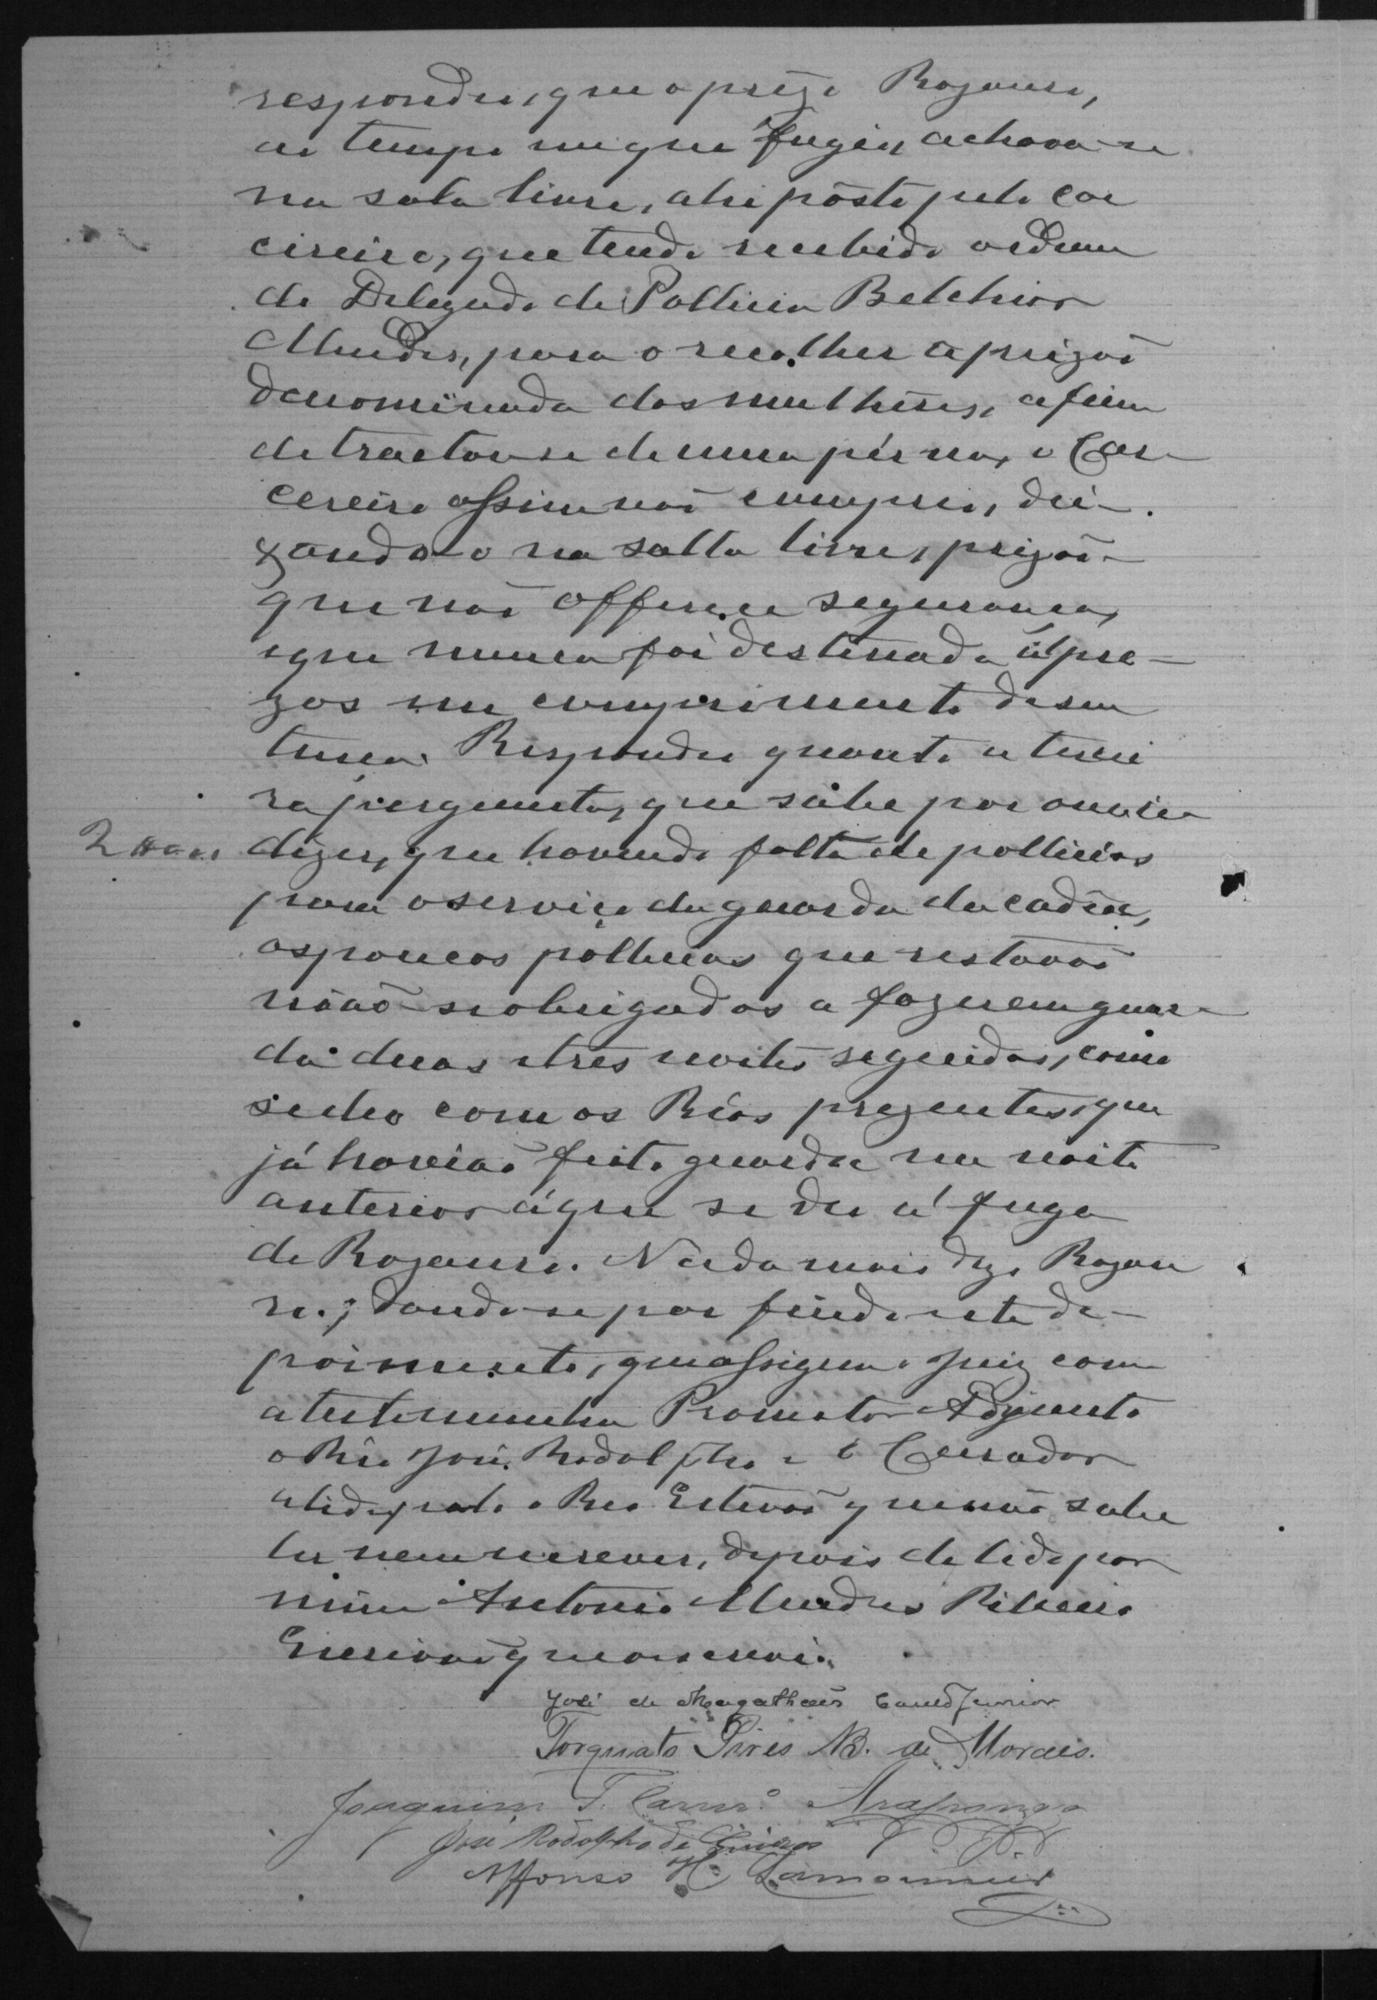 respondeu, que o prezo Rozauro,
ao tempo em que fugio, achava-se
na sala livre, ahi pôsto pelo car
cireiro, que tendo recebido ordem
do Delegado de Pollicia Belchior
Mendes, para o recolher a prizaõ
denominada das mulheres, afim
de tractar-se de uma pérna, o Car-
cereiro assim naõ cumprio, dei-
xando-o na salla livre, prizaõ
que naõ offerece segurança,
e que nunca foi destinada á pre-
zos em comprimento de sen
tença. Respondeu quanto a tercei
ra pergunta, que sabe por ouvir
dizer, que havendo falta de pollicias
para o serviço da guarda da cadêa,
os poucos pollicias que restavaõ
viaõ-se obrigados a fazerem guar-
da duas e tres noites seguidas, como
se deo com os Réos prezentes, que
já haviaõ feito guarda na noite
anterior á que se deu á fuga
de Rozauro. Nada mais disse Rozau
ro; dando-se por findo este de-
poimento, que assigna o Juiz com
a testemunha Promotor Adjunto
o Réo José Rodolpho e o Curador
e pelo Reo Estevaõ que naõ sabe
ler nem escrever, depois de lido por
mim Antonio Mendes Ribeiro
Escrivaõ que o escrevi.
José de Magalhães Junior
Torquato Pires B. de Moraes.
Joaquim T. Carnrº Araponga
José Rodolpho de
Affonso H. Lamounier